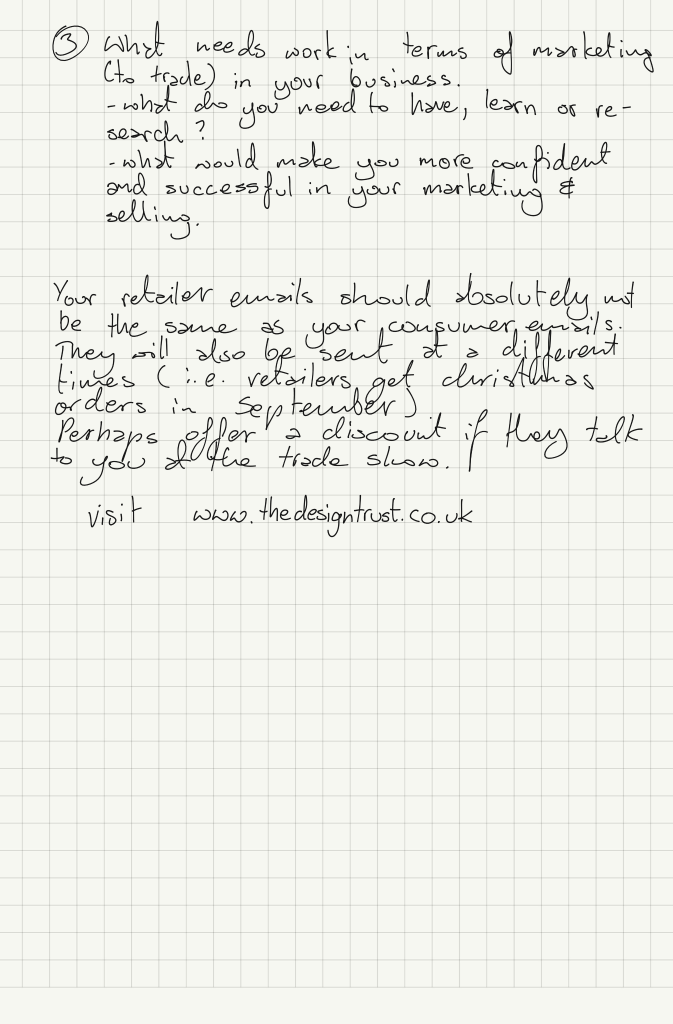 ③ What needs work in terms of marketing
(to trade) in your business.
- what do you need to have, learn or re-
search?
- what would make you more confident
and successful in your marketing &
selling.
Your retailer emails should absolutely not
be the same as your consumer emails.
They will also be sent at a different
times (i.e. retailers get christmas
orders in September)
Perhaps offer a discount if they talk
to you at the trade show.
visit www.thedesigntrust.co.uk